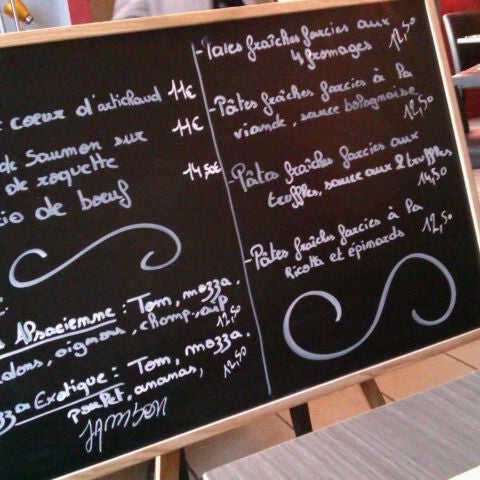 coeur d'artichaud 11€
de Saumon sur 11€
de roquette
io de boeuf 14,50€
Alsacienne : Tom, mozza.
oignons, champ,
12,50
Exotique : Tom, mozza,
poulet, ananas, 12,50
- Pâtes fraîches farcies aux
4 fromages 12,50
- Pâtes fraîches farcies à la
viande, sauce bolognaise
12,50
- Pâtes fraîches farcies aux
truffes, sauce aux 2 truffes
14,50
- Pâtes fraîches farcies à la
Ricotta et épinards 12,50